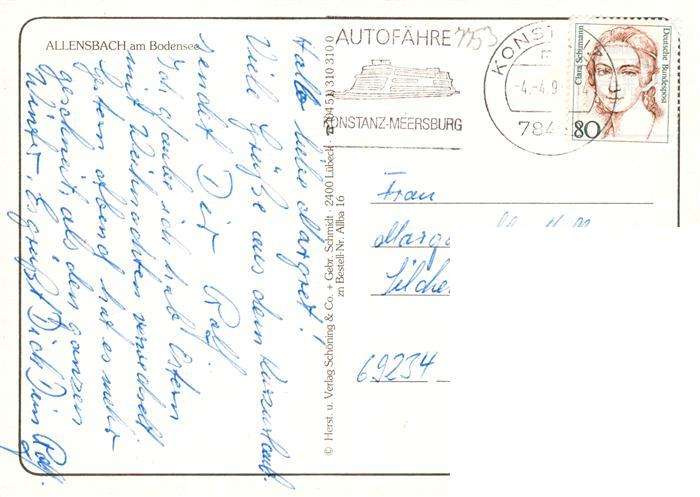 ALLENSBACH am Bodensee
Hallo liebe Margret!
Viele Grüße aus dem Kurzurlaub
sendet Dir Ralf
Ich glaube ich hab Ostern
mit Weihnachten verwechselt
gestern abend hat es mehr
geschneit als den ganzen
Winter. Es grüßt Dich Dein Ralf
© Herst. u. Verlag Schöning & Co. + Gebr. Schmidt · 2400 Lübeck · ☎ (0451) 310 310 0
zu Bestell-Nr. Allba 16
AUTOFÄHRE
KONSTANZ-MEERSBURG
7753
KONSTANZ
-4.-4.9
784
Clara Schumann
Deutsche Bundespost
80
Frau
69234